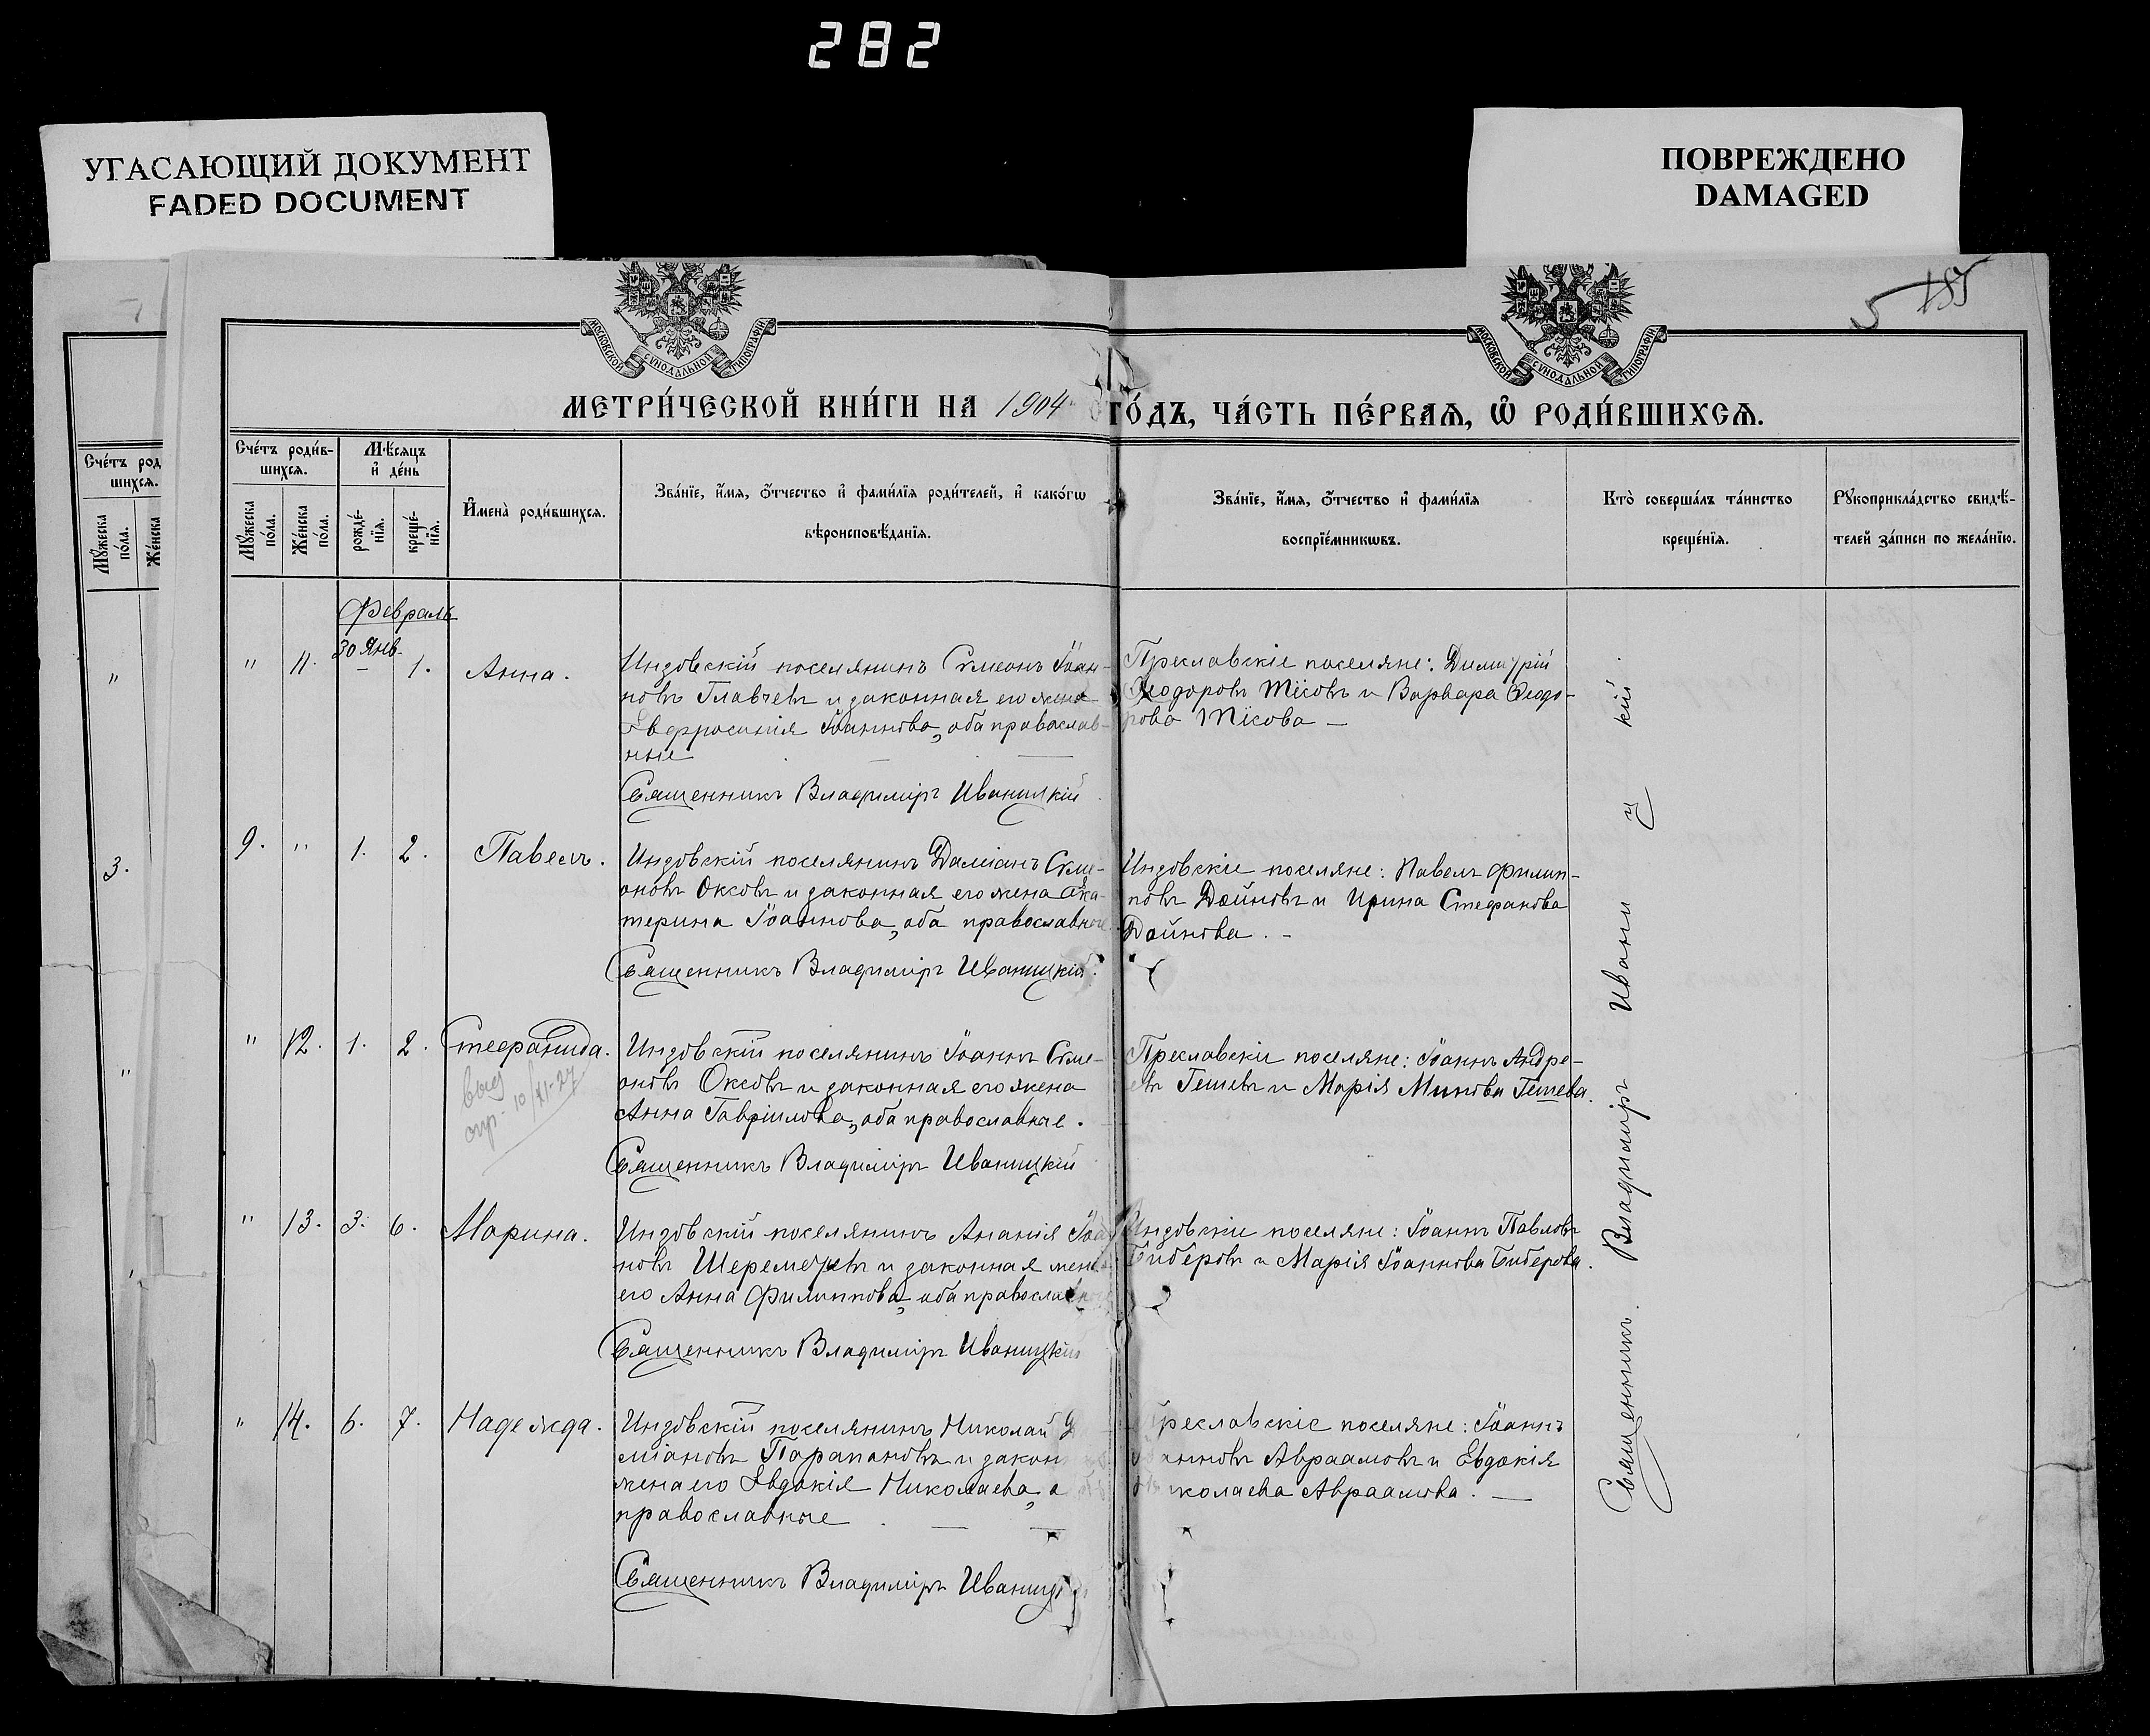 282
УГАСАЮЩИЙ ДОКУМЕНТ
FADED DOCUMENT
ПОВРЕЖДЕНО
DAMAGED
МОСКОВСКОЙ СѴНОДАЛЬНОЙ ТИПОГРАФІИ
МОСКОВСКОЙ СѴНОДАЛЬНОЙ ТИПОГРАФІИ
5 185
МЕТРИ́ЧЕСКОЙ КНИ́ГИ НА 1904 ГО́ДЪ, ЧА́СТЬ ПЕ́РВАѦ, Ѡ҆ РОДИ́ВШИХСѦ.
Сче́тъ род
шихсѧ.
Мꙋ́жеска по́ла.
Же́нска
"
3.
"
Сче́тъ роди́в-
шихсѧ.
Мꙋ́жеска по́ла.
Же́нска по́ла.
Мѣ́сѧцъ
и҆ де́нь
рожде́-
нїѧ.
креще́-
нїѧ.
И҆мена̀ роди́вшихсѧ.
Зва́нїе, и҆́мѧ, ѻ҆́тчество и҆ фами́лїѧ роди́телей, и҆ како́гѡ
вѣроисповѣ́данїѧ.
Зва́нїе, и҆́мѧ, ѻ҆́тчество и҆ фами́лїѧ
воспрїе́мникѡвъ.
Кто̀ соверша́лъ та́инство
креще́нїѧ.
Рꙋкоприкла́дство свидѣ́-
телей за́писи по жела́нїю.
Февраль
" 11. 30 Янв. 1. Анна.
Индовскій поселянинъ Симеонъ Іоан-
новъ Главчевъ и законная его жена
Евфросинія Іоаннова, оба православ-
ные
Священникъ Владиміръ Иваницкій
Преславскіе поселяне: Димитрій
Ѳеодоровъ и Варвара Ѳеодо-
рова
9. " 1. 2. Павелъ.
Индовскій поселянинъ Даміанъ Симе-
оновъ Оксовъ и законная его жена Ека-
терина Іоаннова, оба православные
Священникъ Владиміръ Иваницкій.
Индовскіе поселяне: Павелъ Филип-
повъ Дойновъ и Ирина Стефанова
Дойнова. -
" 12. 1. 2. Стефанида.
выд
спр. 10/XI-27
Индовскій поселянинъ Іоаннъ Симе-
оновъ Оксовъ и законная его жена
Анна Гавріилова, оба православные.
Священникъ Владиміръ Иваницкій
Преславскіе поселяне: Іоаннъ Андре-
евъ Гешевъ и Марія Минова Гешева.
" 13. 3. 6. Марина.
Индовскій поселянинъ Ананія Іоан
новъ Шереметъевъ и законная жена
его Анна Филиппова, оба православ
Священникъ Владиміръ Иваницкій
Индовскіе поселяне: Іоаннъ Павловъ
Биберовъ и Марія Іоаннова Биберова.
" 14. 6. 7. Надежда.
Индовскій поселянинъ Николай Д
міановъ Парапановъ и закон
жена его Евдокія Николаева, о
православные
Священникъ Владиміръ Иваниц
Преславскіе поселяне: Іоаннъ
Іоанновъ Авраамовъ и Евдокія
Николаева Авраамова. —
Священникъ. Владиміръ Иваницкій.